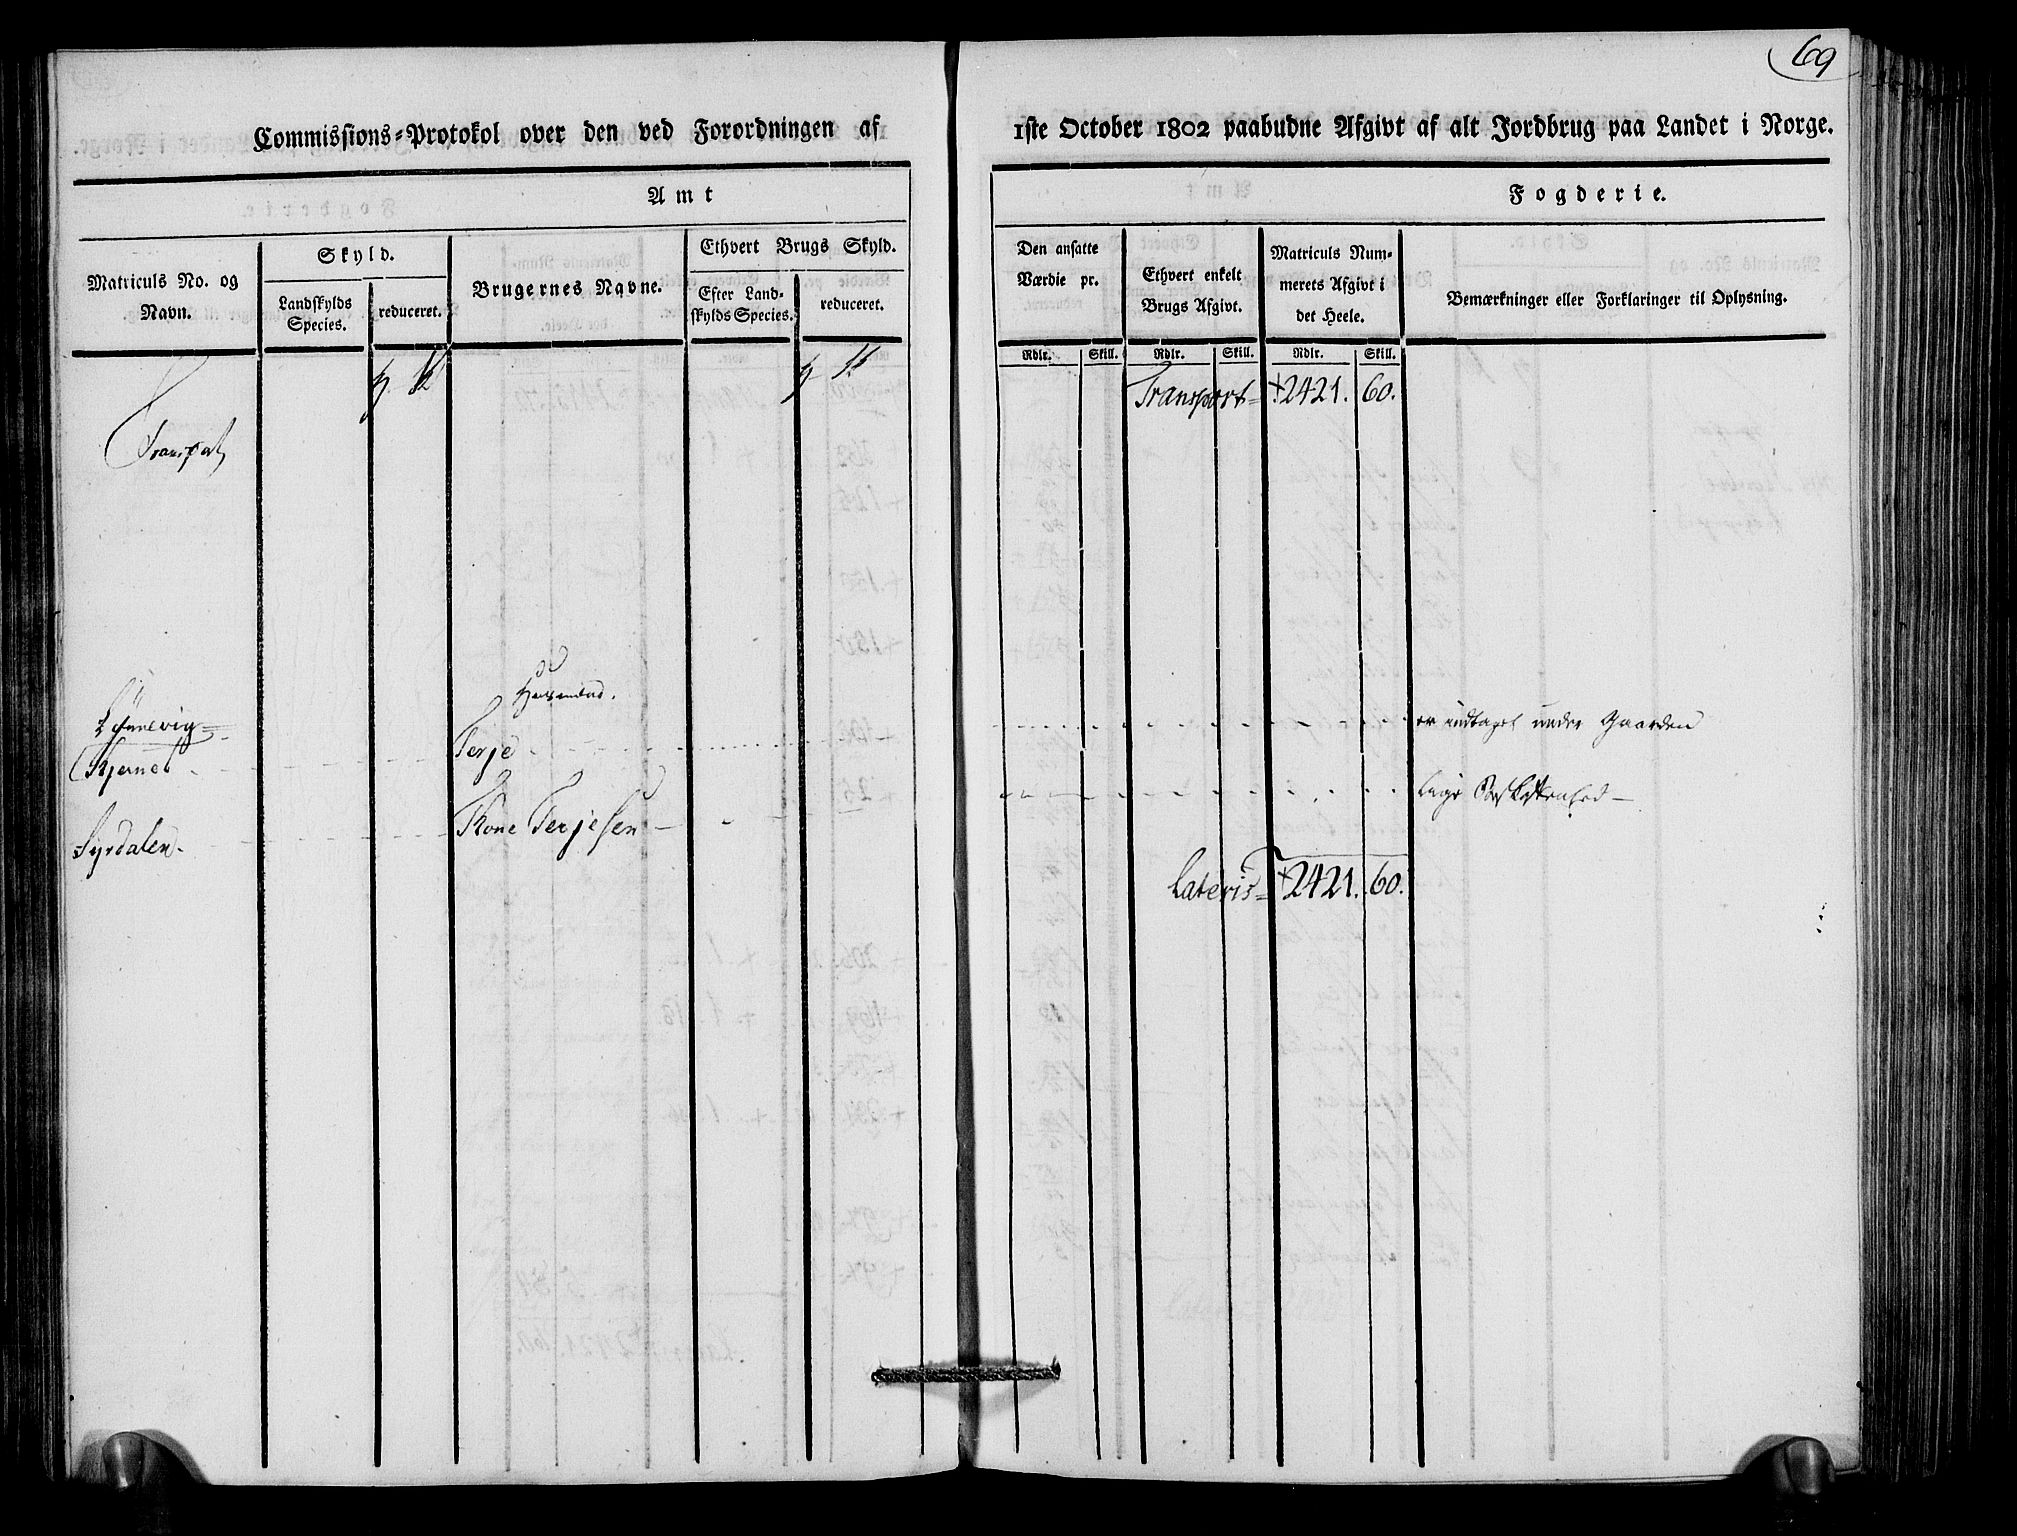 69
Commissions-Protokol over den ved Forordningen af
1ste October 1802 paabudne Afgivt af alt Jordbrug paa Landet i Norge.
Amt
Fogderie.
Matriculs No. og Navn.
Skyld.
Landskylds Species.
reduceret.
Brugernes Navne.
Ethvert Brugs Skyld.
Efter Landskylds Species.
reduceret.
Den ansatte Værdie pr.
Ethvert enkelt Brugs Afgivt.
Matriculs Nummerets Afgivt i det Heele.
Bemærkninger eller Forklaringer til Oplysning.
Rdlr. Skill. Rdlr. Skill. Rdlr. Skill.
Transport
Transport = 2421. 60.
Lønnevig =
Kjernes
Terje
er indtaget under Gaarden
Syrdalen
Tkone Terjesen
lige Beskaffenhed
Lateris = 2421. 60.